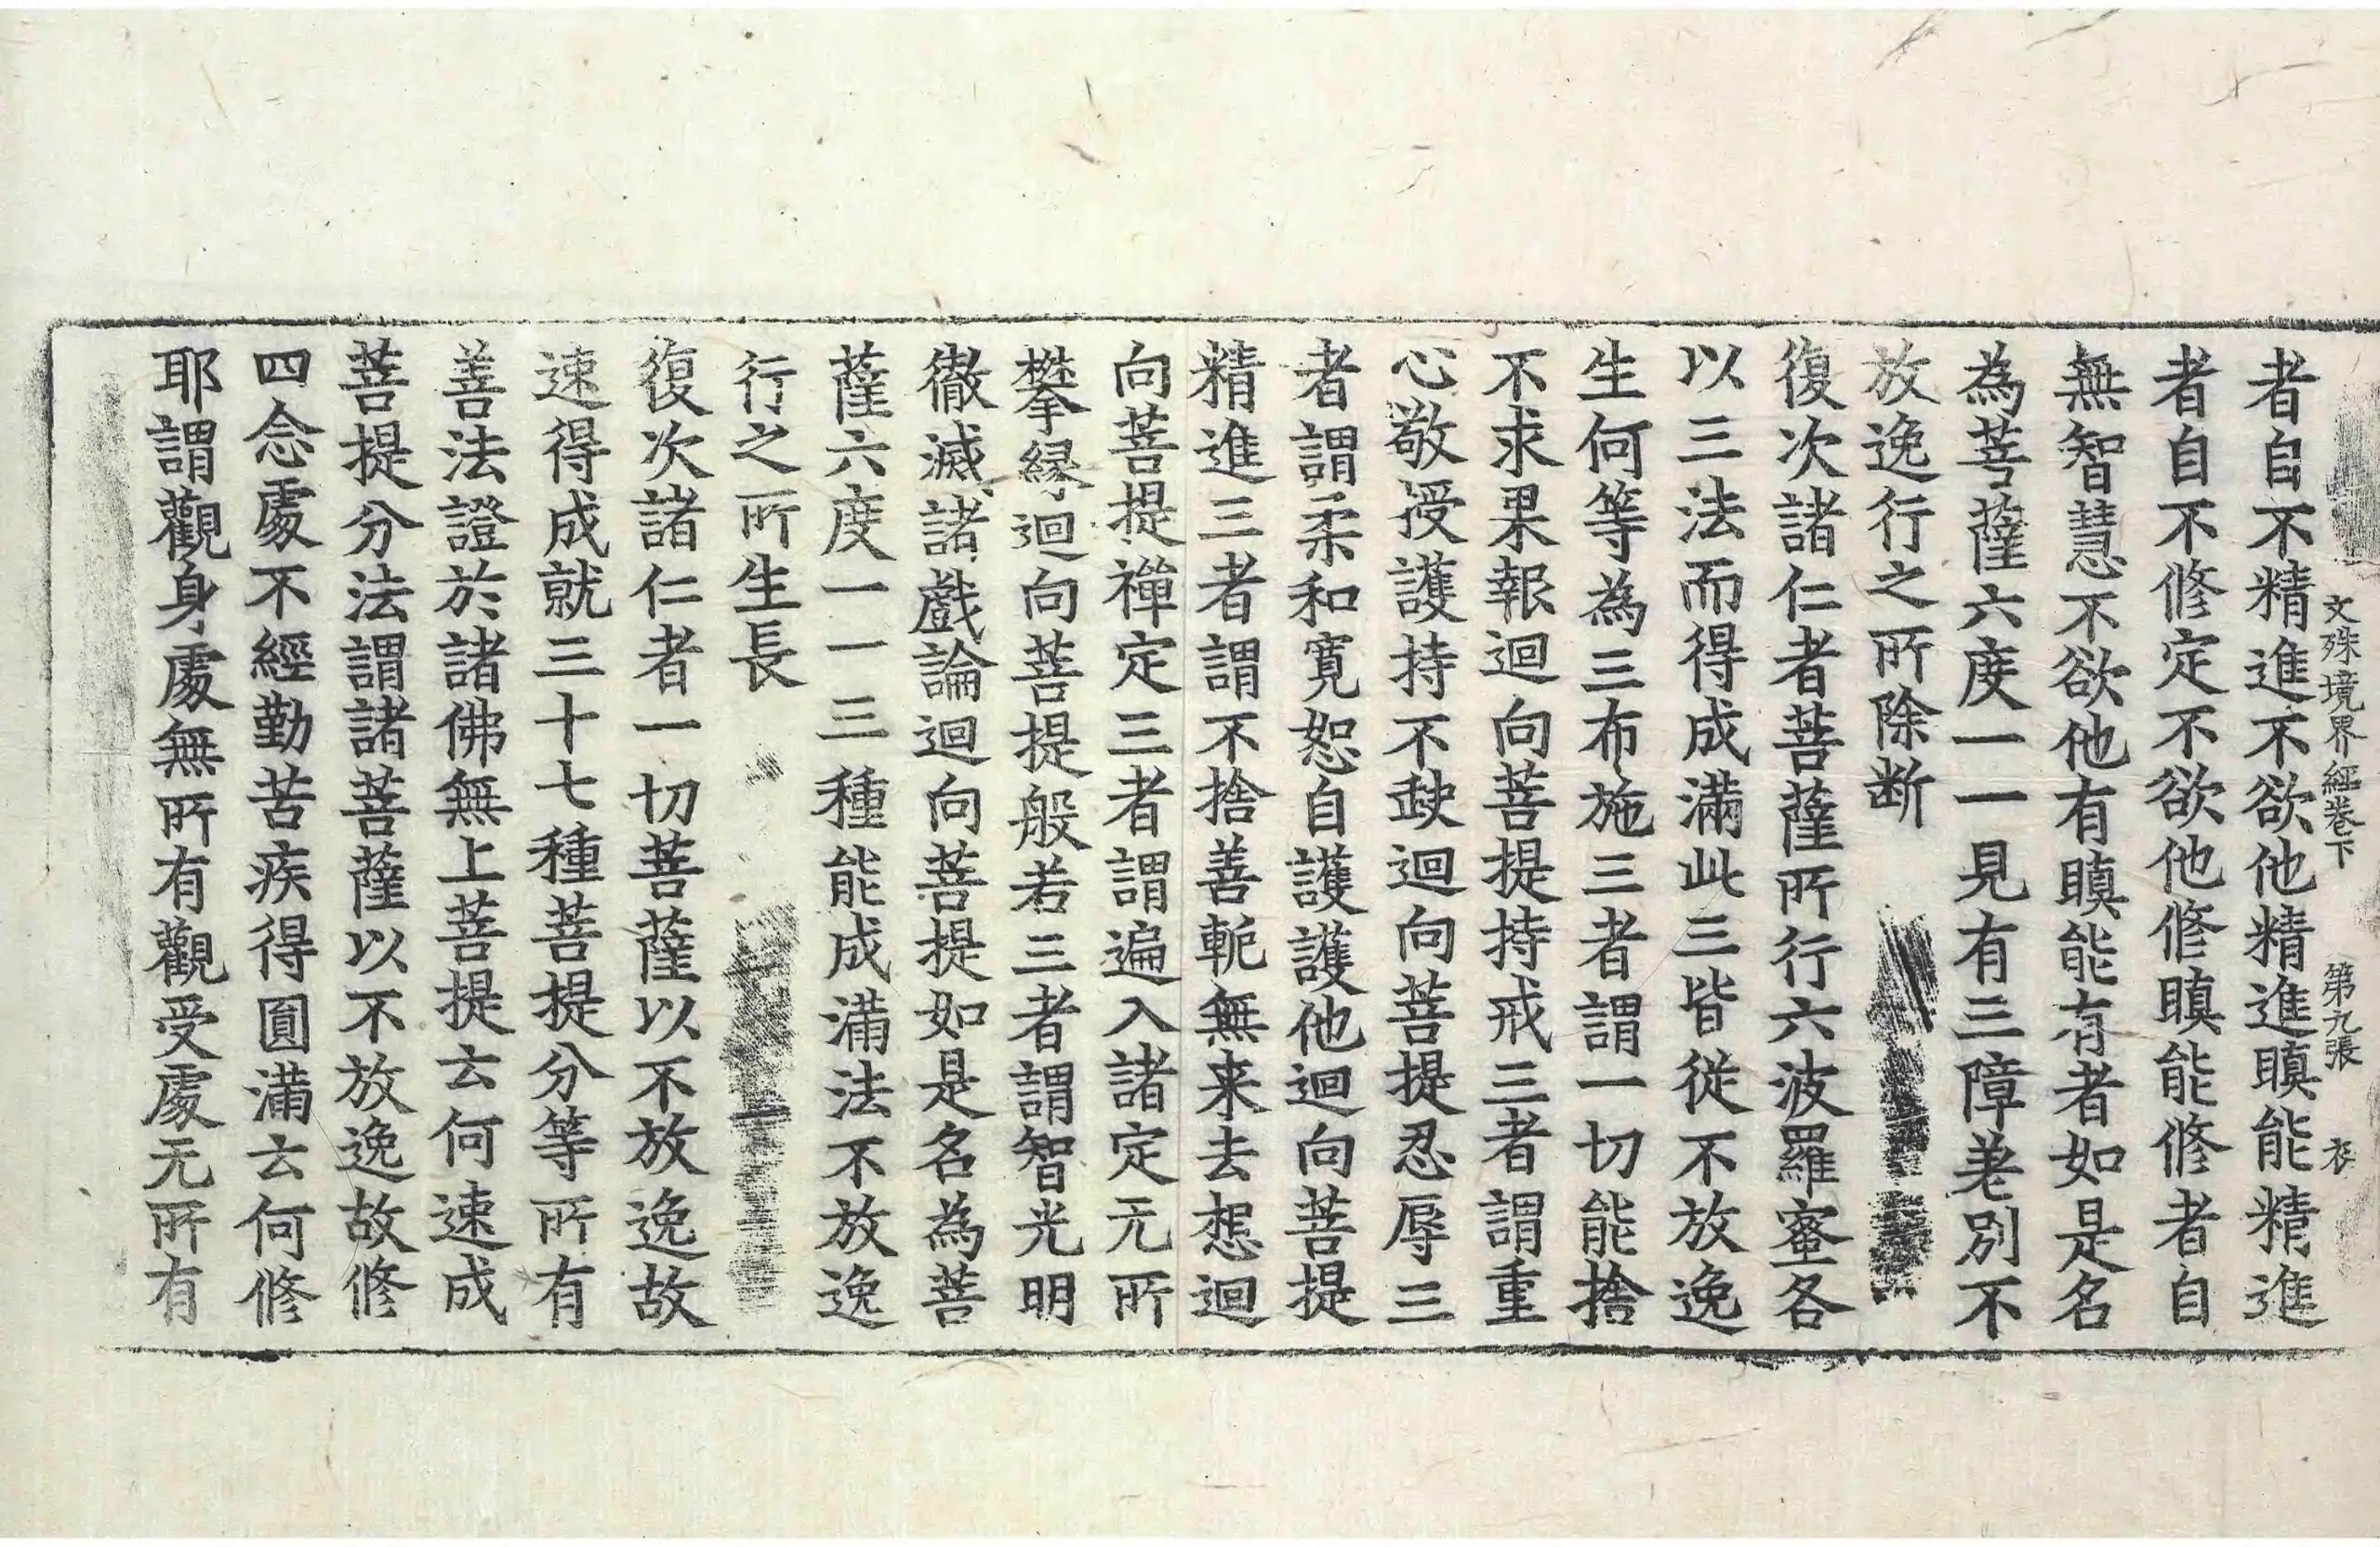 文殊境界經卷下 第九張 衣
者自不精進不欲他精進瞋能精進
者自不修定不欲他修瞋能修者自
無智慧不欲他有瞋能有者如是名
為菩薩六度一一見有三障差別不
放逸行之所除断
復次諸仁者菩薩所行六波羅蜜各
以三法而得成滿此三皆從不放逸
生何等為三布施三者謂一切能捨
不求果報迴向菩提持戒三者謂重
心敬授護持不𡙇迴向菩提忍辱三
者謂柔和寬恕自護護他迴向菩提
精進三者謂不捨善軛無来去想迴
向菩提禪定三者謂遍入諸定无所
攀縁迴向菩提般若三者謂智光明
徹滅諸戲論迴向菩提如是名為菩
薩六度一一三種能成滿法不放逸
行之所生長
復次諸仁者一切菩薩以不放逸故
速得成就三十七種菩提分等所有
善法證於諸佛無上菩提云何速成
菩提分法謂諸菩薩以不放逸故修
四念處不經勤苦疾得圓滿云何修
耶謂觀身處無所有觀受處无所有